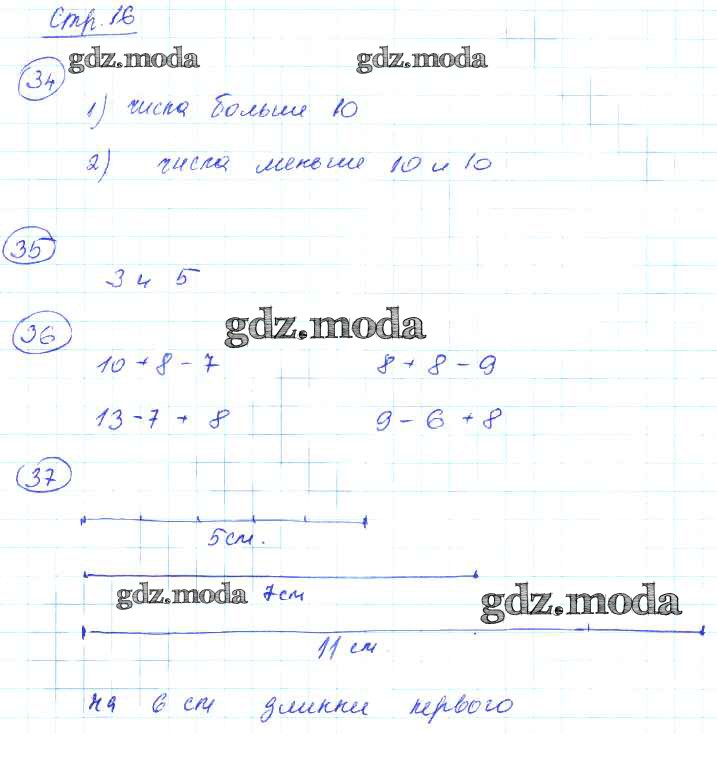 Стр. 16
gdz.moda gdz.moda
34
1) числа больше 10
2) числа меньше 10 и 10
35
3 и 5
36 gdz.moda
10 + 8 - 7 8 + 8 - 9
13 - 7 + 8 9 - 6 + 8
37
5 см.
gdz.moda 7 см gdz.moda
11 см
на 6 см длинне первого